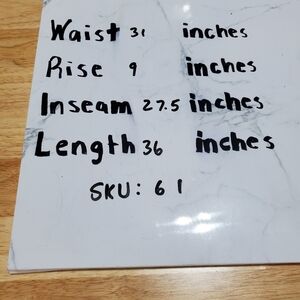 Waist 31 inches
Rise 9 inches
Inseam 27.5 inches
Length 36 inches
SKU: 61